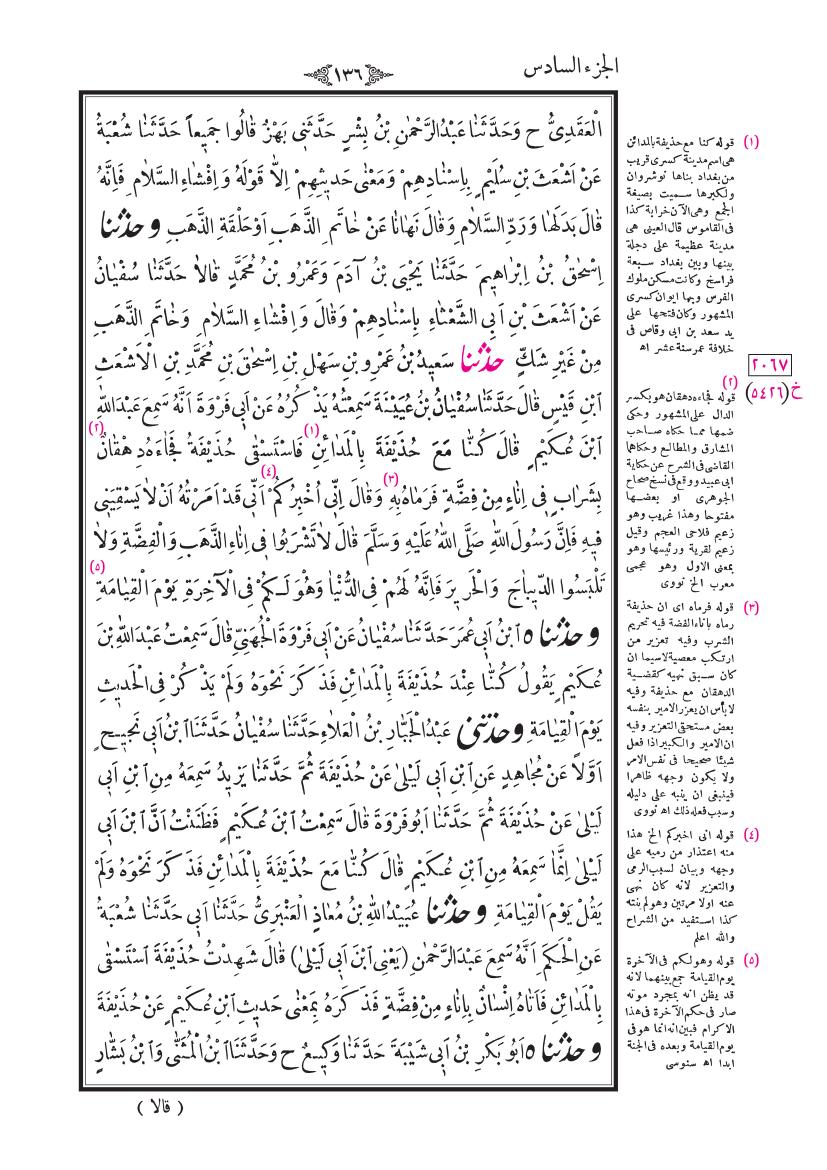 الجزء السادس
١٣٦
الْعَقَدِىُّ ح وَحَدَّثَنَا عَبْدُالرَّحْمٰنِ بْنُ بِشْرٍ حَدَّثَنِى بَهْزٌ قَالُوا جَمِيعاً حَدَّثَنَا شُعْبَةُ
عَنْ اَشْعَثَ بْنِ سُلَيْمٍ بِاِسْنَادِهِمْ وَمَعْنٰى حَدِيثِهِمْ اِلَّا قَوْلَهُ وَاِفْشَاءِ السَّلَامِ فَاِنَّهُ
قَالَ بَدَلَهَا وَرَدِّ السَّلَامِ وَقَالَ نَهَانَا عَنْ خَاتَمِ الذَّهَبِ اَوْ حَلْقَةِ الذَّهَبِ و حدثنا
اِسْحٰقُ بْنُ اِبْرَاهِيمَ حَدَّثَنَا يَحْيَى بْنُ آدَمَ وَعَمْرُو بْنُ مُحَمَّدٍ قَالَا حَدَّثَنَا سُفْيَانُ
عَنْ اَشْعَثَ بْنِ اَبِى الشَّعْثَاءِ بِاِسْنَادِهِمْ وَقَالَ وَاِفْشَاءِ السَّلَامِ وَخَاتَمِ الذَّهَبِ
مِنْ غَيْرِ شَكٍّ حدثنا سَعِيدُ بْنُ عَمْرِو بْنِ سَهْلِ بْنِ اِسْحٰقَ بْنِ مُحَمَّدِ بْنِ الْاَشْعَثِ
ابْنِ قَيْسٍ قَالَ حَدَّثَنَا سُفْيَانُ بْنُ عُيَيْنَةَ سَمِعْتُهُ يَذْكُرُهُ عَنْ اَبِى فَرْوَةَ اَنَّهُ سَمِعَ عَبْدَاللّٰهِ
ابْنَ عُكَيْمٍ قَالَ كُنَّا مَعَ حُذَيْفَةَ بِالْمَدَائِنِ (١) فَاسْتَسْقٰى حُذَيْفَةُ فَجَاءَهُ دِهْقَانٌ (٢)
بِشَرَابٍ فِى اِنَاءٍ مِنْ فِضَّةٍ فَرَمَاهُ بِهِ (٣) وَقَالَ اِنِّى اُخْبِرُكُمْ (٤) اَنِّى قَدْ اَمَرْتُهُ اَنْ لَا يَسْقِيَنِى
فِيهِ فَاِنَّ رَسُولَ اللّٰهِ صَلَّى اللّٰهُ عَلَيْهِ وَسَلَّمَ قَالَ لَا تَشْرَبُوا فِى اِنَاءِ الذَّهَبِ وَالْفِضَّةِ وَلَا
تَلْبَسُوا الدِّيبَاجَ وَالْحَرِيرَ فَاِنَّهُ لَهُمْ فِى الدُّنْيَا وَهُوَ لَكُمْ فِى الْآخِرَةِ يَوْمَ الْقِيَامَةِ (٥)
و حدثناه ابْنُ اَبِى عُمَرَ حَدَّثَنَا سُفْيَانُ عَنْ اَبِى فَرْوَةَ الْجُهَنِىِّ قَالَ سَمِعْتُ عَبْدَ اللّٰهِ بْنَ
عُكَيْمٍ يَقُولُ كُنَّا عِنْدَ حُذَيْفَةَ بِالْمَدَائِنِ فَذَكَرَ نَحْوَهُ وَلَمْ يَذْكُرْ فِى الْحَدِيثِ
يَوْمَ الْقِيَامَةِ وحدثنى عَبْدُ الْجَبَّارِ بْنُ الْعَلَاءِ حَدَّثَنَا سُفْيَانُ حَدَّثَنَا ابْنُ اَبِى نَجِيحٍ
اَوَّلاً عَنْ مُجَاهِدٍ عَنِ ابْنِ اَبِى لَيْلٰى عَنْ حُذَيْفَةَ ثُمَّ حَدَّثَنَا يَزِيدُ سَمِعَهُ مِنِ ابْنِ اَبِى
لَيْلٰى عَنْ حُذَيْفَةَ ثُمَّ حَدَّثَنَا اَبُو فَرْوَةَ قَالَ سَمِعْتُ ابْنَ عُكَيْمٍ فَظَنَنْتُ اَنَّ ابْنَ اَبِى
لَيْلٰى اِنَّمَا سَمِعَهُ مِنِ ابْنِ عُكَيْمٍ قَالَ كُنَّا مَعَ حُذَيْفَةَ بِالْمَدَائِنِ فَذَكَرَ نَحْوَهُ وَلَمْ
يَقُلْ يَوْمَ الْقِيَامَةِ و حدثنا عُبَيْدُ اللّٰهِ بْنُ مُعَاذٍ الْعَنْبَرِىُّ حَدَّثَنَا اَبِى حَدَّثَنَا شُعْبَةُ
عَنِ الْحَكَمِ اَنَّهُ سَمِعَ عَبْدَ الرَّحْمٰنِ (يَعْنِى ابْنَ اَبِى لَيْلٰى) قَالَ شَهِدْتُ حُذَيْفَةَ اسْتَسْقٰى
بِالْمَدَائِنِ فَاَتَاهُ اِنْسَانٌ بِاِنَاءٍ مِنْ فِضَّةٍ فَذَكَرَهُ بِمَعْنٰى حَدِيثِ ابْنِ عُكَيْمٍ عَنْ حُذَيْفَةَ
و حدثناه اَبُو بَكْرِ بْنُ اَبِى شَيْبَةَ حَدَّثَنَا وَكِيعٌ ح وَحَدَّثَنَا ابْنُ الْمُثَنّٰى وَابْنُ بَشَّارٍ
( قالا )
(١) قوله كنا مع حذيفة بالمدائن
هى اسم مدينة كسرى قريب
من بغداد بناها نوشروان
ولكبرها سميت بصيغة
الجمع وهى الآن خرابة كذا
فى القاموس قال العينى هى
مدينة عظيمة على دجلة
بينها وبين بغداد سبعة
فراسخ وكانت مسكن ملوك
الفرس وبها ايوان كسرى
المشهور وكان فتحها على
يد سعد بن ابى وقاص فى
خلافة عمر سنة عشر اه
٢٠٦٧
خ (٥٤٢٦)
(٢)
قوله فجاءه دهقان هو بكسر
الدال على المشهور وحكى
ضمها مما حكاه صاحب
المشارق والمطالع وحكاهما
القاضى فى الشرح عن حكاية
ابى عبيد ووقع فى نسخ صحاح
الجوهرى او بعضها
مفتوحا وهذا غريب وهو
زعيم فلاحى العجم وقيل
زعيم لقرية ورئيسها وهو
بمعنى الاول وهو عجمى
معرب الخ نووى
(٣) قوله فرماه اى ان حذيفة
رماه باناء الفضة فيه تحريم
الشرب وفيه تعزير من
ارتكب معصية لاسيما ان
كان سبق نهيه كقضية
الدهقان مع حذيفة وفيه
لا بأس ان يعزر الامير بنفسه
بعض مستحقى التعزير وفيه
ان الامير والكبير اذا فعل
شيئا صحيحا فى نفس الامر
ولا يكون وجهه ظاهرا
فينبغى ان ينبه على دليله
وسبب فعله ذلك اه نووى
(٤) قوله انى اخبركم الخ هذا
منه اعتذار من رميه على
وجهه وبيان لسبب الرمى
والتعزير لانه كان نهى
عنه اولا مرتين وهو لم ينته
كذا استفيد من الشراح
والله اعلم
(٥) قوله وهو لكم فى الآخرة
يوم القيامة جمع بينهما لانه
قد يظن انه بمجرد موته
صار فى حكم الآخرة فى هذا
الاكرام فبين انه انما هو فى
يوم القيامة وبعده فى الجنة
ابدا اه سنوسى